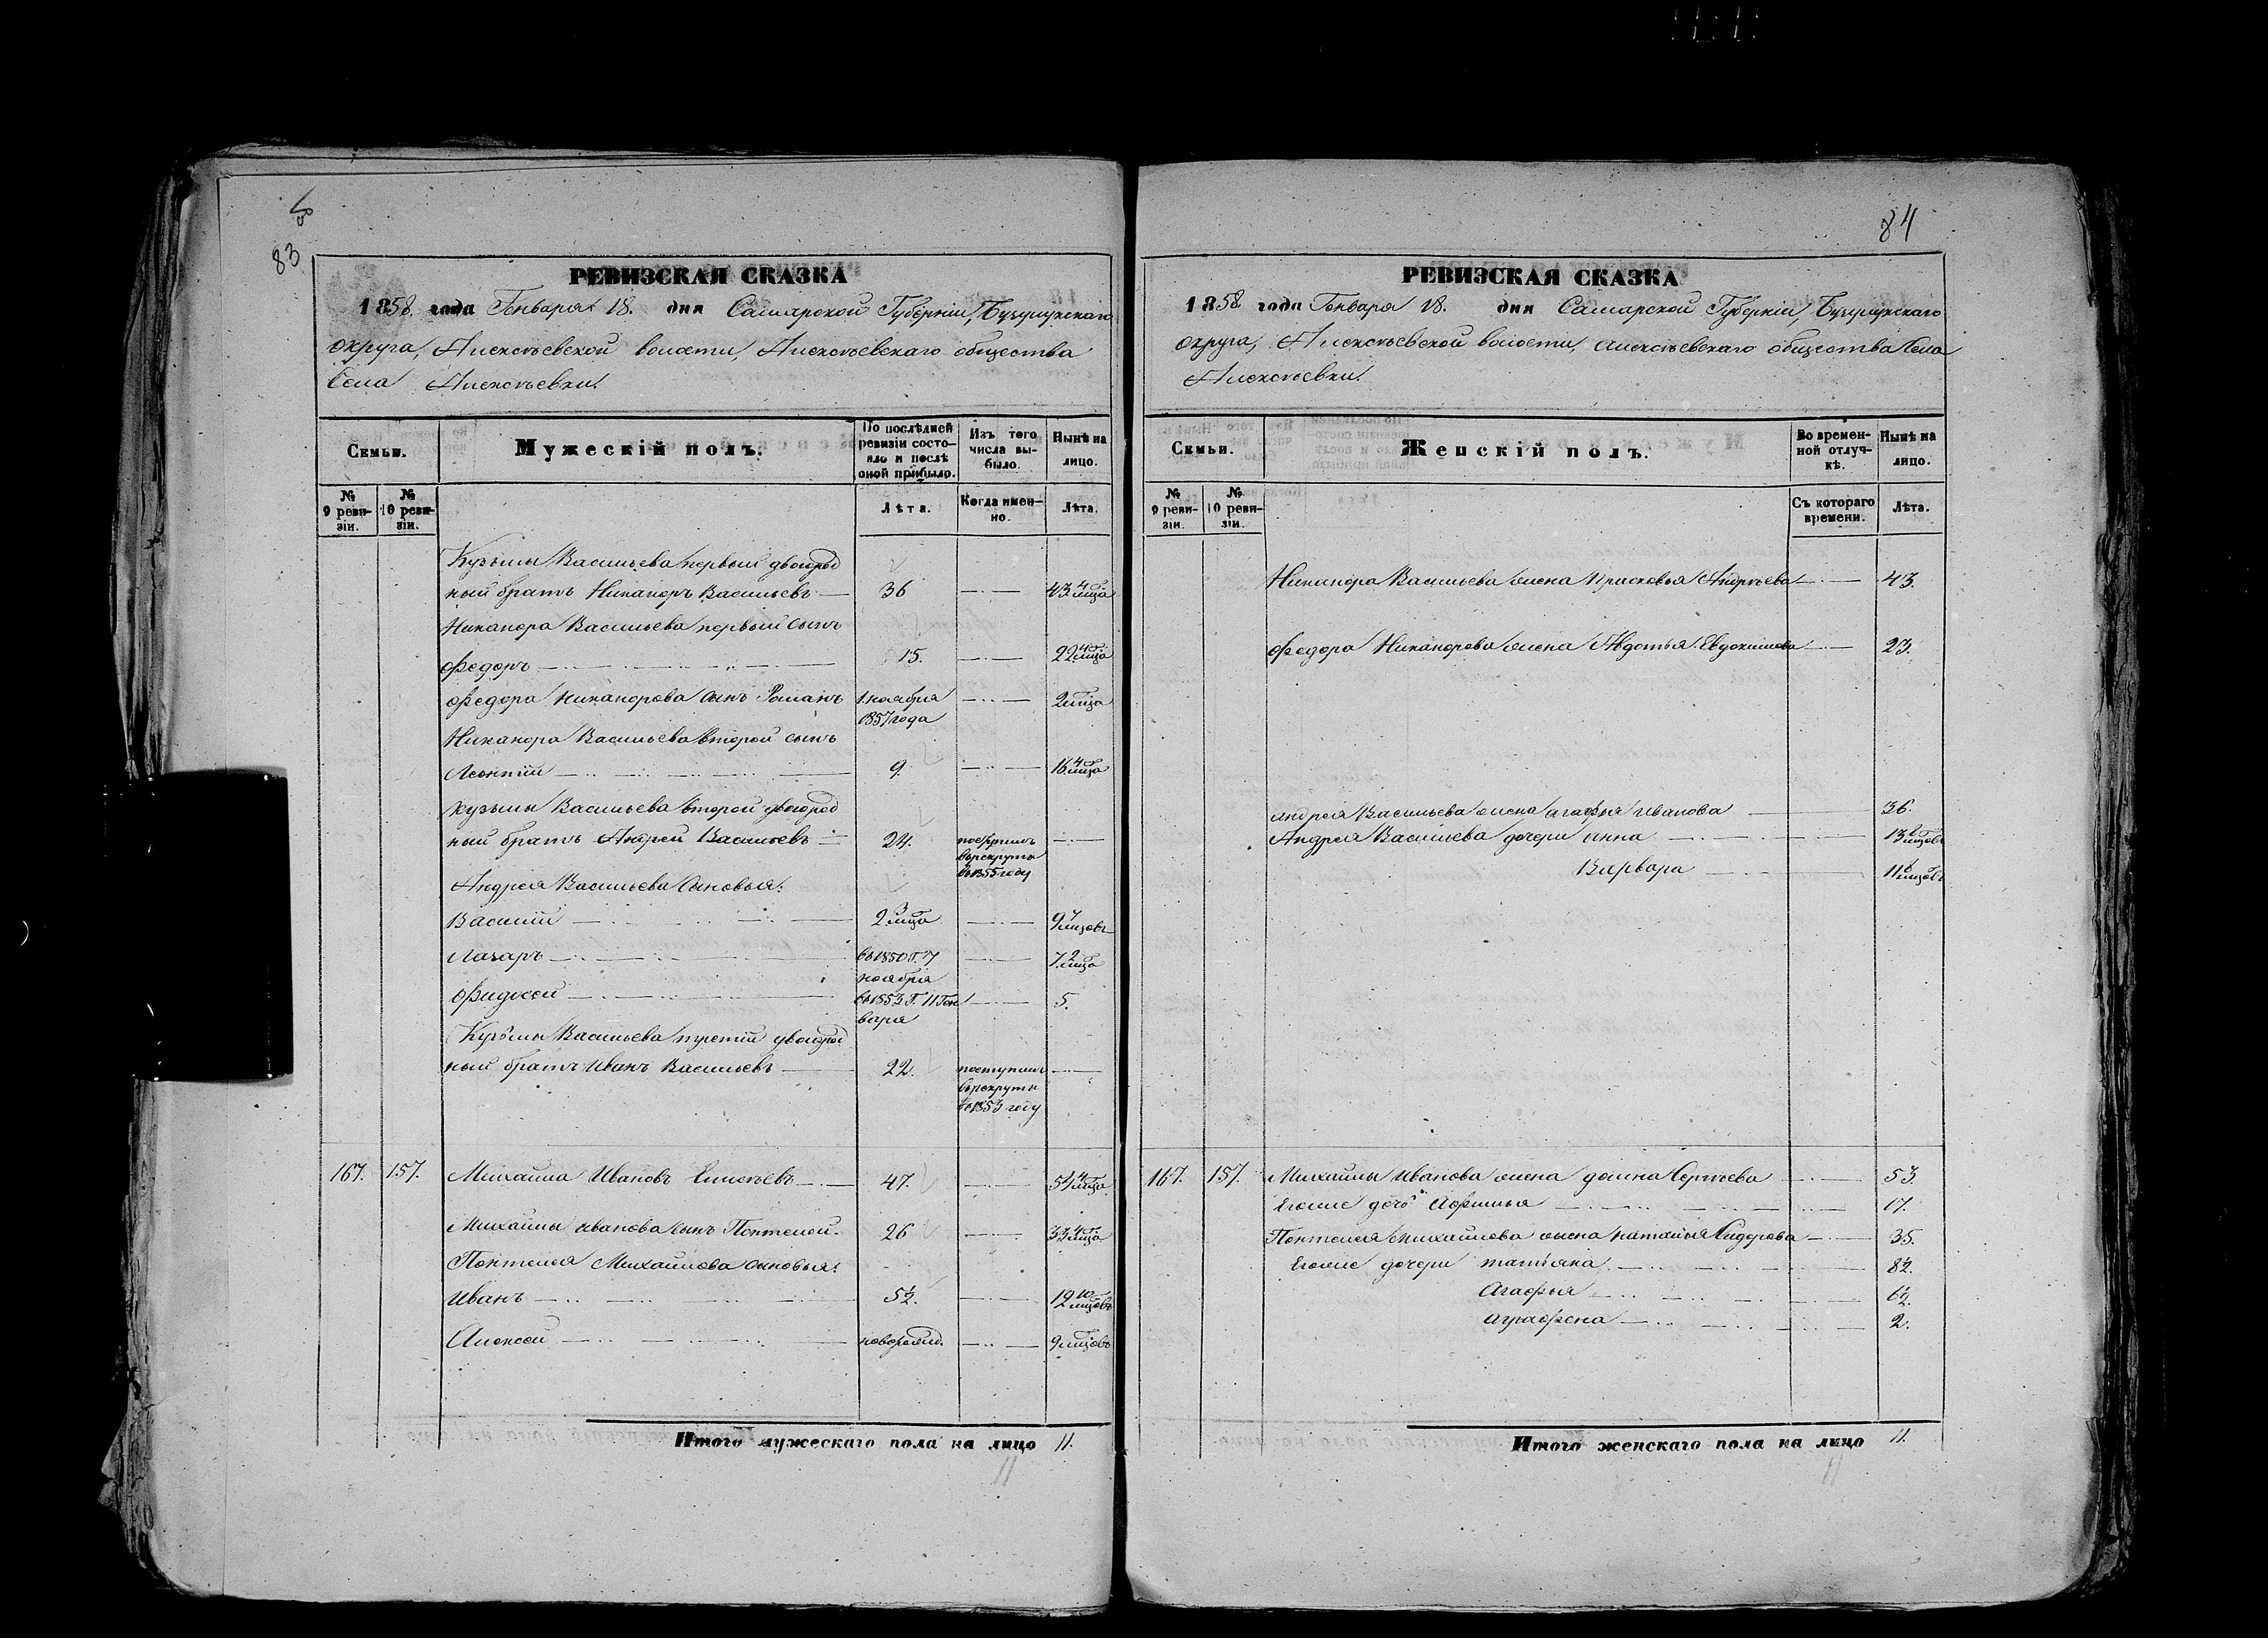 83
РЕВИЗСКАЯ СКАЗКА
1858 года Генваря 18. дня Самарской Губерніи, Бузулукскаго
округа, Алексѣевской волости, Алексѣевскаго общества
Села Алексѣевки.
Семьи.
Мужескій полъ.
По послѣдней ревизіи состояло и послѣ оной прибыло.
Изъ того числа выбыло.
Нынѣ на лицо.
№ 9 ревизіи.
№ 10 ревизіи.
Лѣта.
Когда именно.
Лѣта.
Кузьмы Васильева первый двоюрод
ный братъ Никаноръ Васильевъ 36 43 4 мѣца
Никанора Васильева первый сынъ
Федоръ 15. 22 4 мѣца
Федора Никанорова сынъ Романъ 1 ноября 2 мѣца
1857 года
Никанора Васильева второй сынъ
Леонтій 9. 16 4 мѣца
Кузьмы Васильева второй двоюрод
ный братъ Андрей Васильевъ 24. поступилъ
въ рекруты
въ 1855 году
Андрея Васильева сыновья:
Василій 2 3 мѣца 9 7 мѣцовъ
Лазарь въ 1850 г. 7 7 2 мѣца
ноября
Фидосей въ 1853 г. 11 Ген 5.
варя
Кузьмы Васильева третій двоюрод
ный братъ Иванъ Васильевъ 22. поступилъ
въ рекруты
въ 1853 году
167. 157. Михайла Ивановъ Елисѣевъ 47. 54 4 мѣца
Михайлы Иванова сынъ Понтелей. 26 33 4 мѣца
Понтелея Михайлова сыновья:
Иванъ 5½. 12 10 мѣцовъ
Алексей новорожд. 9 мѣцовъ
Итого мужескаго пола на лицо 11.
11
84
РЕВИЗСКАЯ СКАЗКА
1858 года Генваря 18. дня Самарской Губерніи, Бузулукскаго
округа, Алексѣевской волости, Алексѣевскаго общества Села
Алексѣевки.
Семьи.
Женскій полъ.
Во временной отлучкѣ.
Нынѣ на лицо.
№ 9 ревизіи.
№ 10 ревизіи.
Съ котораго времени.
Лѣта.
Никанора Васильева жена Прасковья Андрѣева 43.
Федора Никанорова жена Авдотья Евдокимова 23.
Андрея Васильева жена Агафья Иванова 36.
Андрея Васильева дочери Анна 13 мѣцовъ
Варвара 11 мѣцовъ
167. 157. Михайлы Иванова жена Домна Сергѣева 53.
Егоже дочь Афимья 17.
Понтелея Михайлова жена Наталья Сидорова 35.
Егоже дочери Татьяна 8½.
Агафья 6½.
Аграфена 2.
Итого женскаго пола на лицо 11.
11